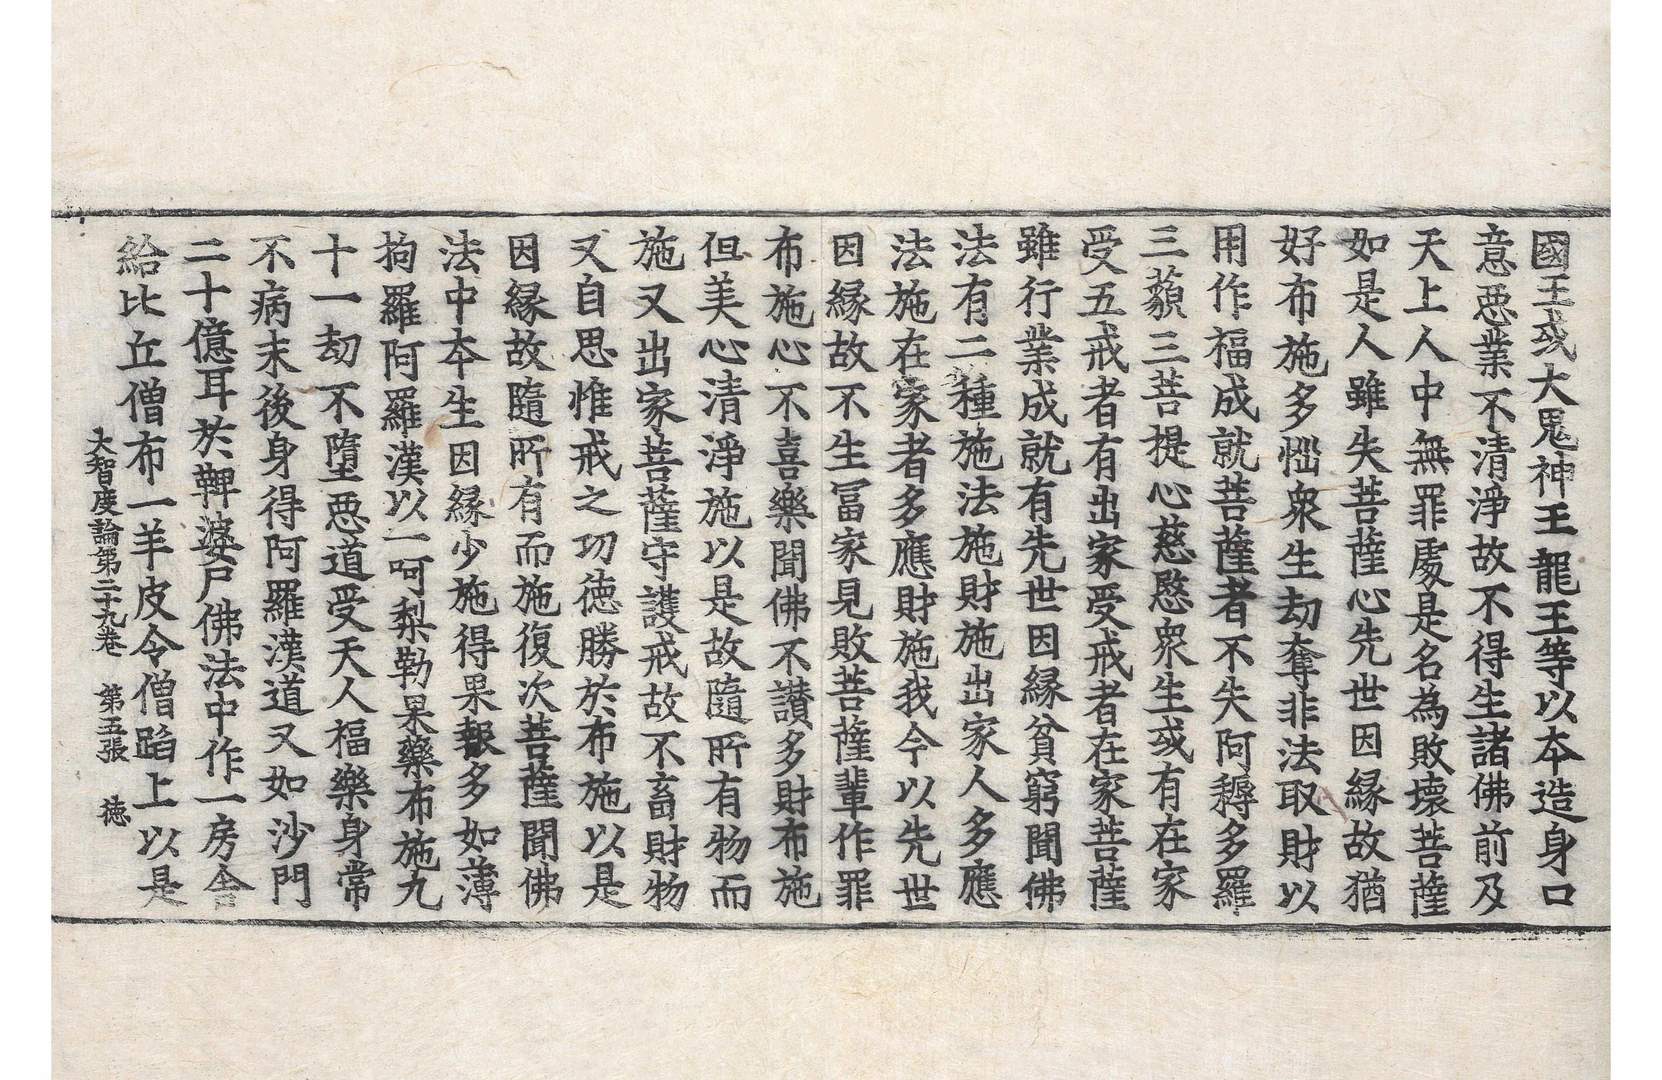 國王或大鬼神王龍王等以本造身口
意惡業不清淨故不得生諸佛前及
天上人中無罪處是名為敗壞菩薩
如是人雖失菩薩心先世因緣故猶
好布施多惱衆生劫奪非法取財以
用作福成就菩薩者不失阿耨多羅
三藐三菩提心慈愍衆生或有在家
受五戒者有出家受戒者在家菩薩
雖行業成就有先世因緣貧窮聞佛
法有二種施法施財施出家人多應
法施在家者多應財施我今以先世
因緣故不生冨家見敗菩薩輩作罪
布施心不喜樂聞佛不讃多財布施
但美心清淨施以是故隨所有物而
施又出家菩薩守護戒故不畜財物
又自思惟戒之功徳勝於布施以是
因緣故隨所有而施復次菩薩聞佛
法中夲生因緣少施得果報多如薄
拘羅阿羅漢以一呵梨勒果藥布施九
十一劫不墮惡道受天人福樂身常
不病末後身得阿羅漢道又如沙門
二十億耳於鞞婆尸佛法中作一房舎
給比丘僧布一羊皮令僧蹈上以是
大智度論第二十九卷 第五張 徳